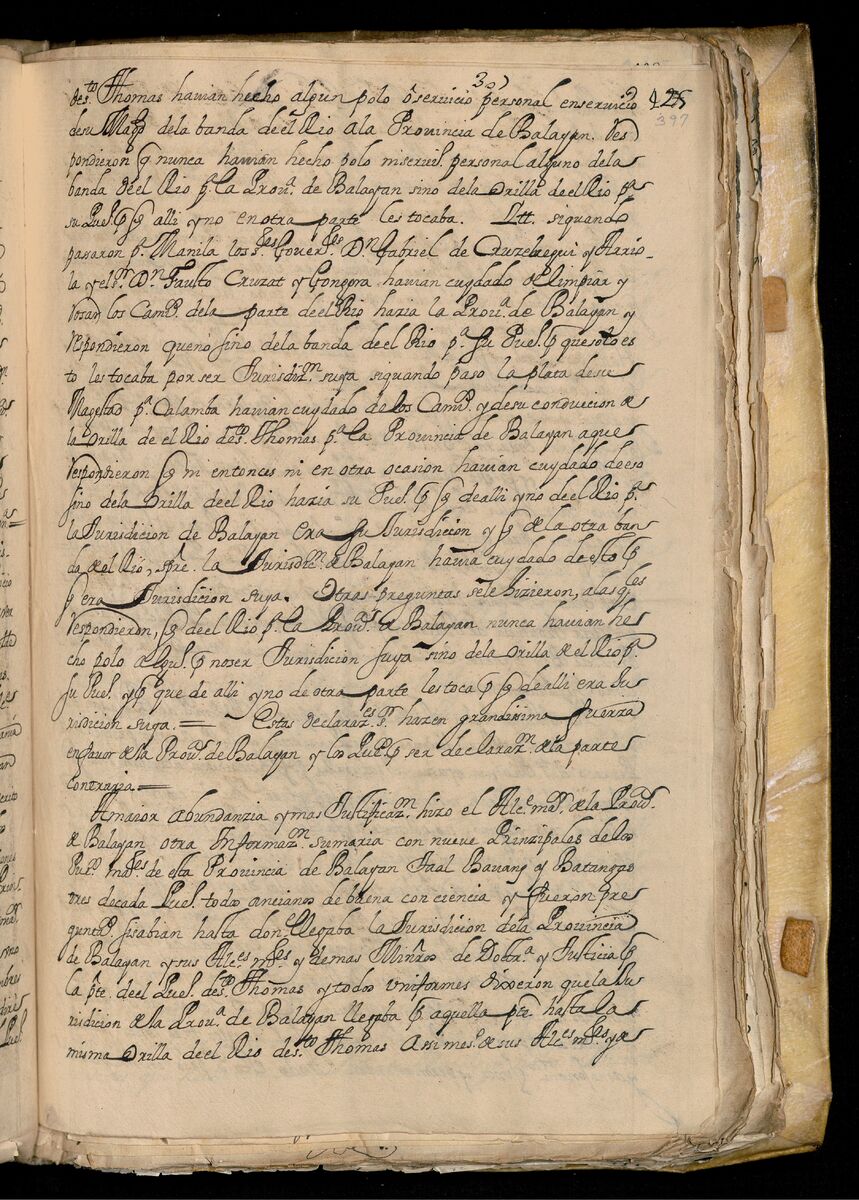 30)
des.to Thomas havian hecho algun polo o servicio personal en servicio 425
397
de su Mag.d dela banda deel Rio ala Provincia de Balayan. Res
pondieron q nunca havian hecho polo ni servi.o personal alguno dela
banda deel Rio p.a la Prov.a de Balayan sino dela Orilla deel Rio p.a
su Puel. p q alli y no en otra parte les tocaba. Itt. si quando
passaron p.a Manila los s.res Gover.res D.n Gabriel de Cruzelaegui y Arrio-
la y el s.r D.n Fausto Cruzat y Gongora havian cuydado de limpiar y
rosar los Cam.s dela parte deel Rio hazia la Prov.a de Balayan y
respondieron que no sino dela banda deel Rio p.a su Puel. p que solo es
to les tocaba por ser Jurisdiz.n suya si quando paso la plata de su
Magestad p.a Calamba havian cuydado de los Cam.s y de su conduccion de
la Orilla de el Rio de s.to Thomas p.a la Provincia de Balayan a que
respondieron q ni entonces ni en otra ocasion havian cuydado de eso
sino dela Orilla deel Rio hazia su Puel. p q de alli y no deel Rio p.a
la Jurisdicion de Balayan era su Jurisdicion y q de la otra ban
da de el Rio, spre. la Jurisdic.n de Balayan havia cuydado de esto p
q era Jurisdicion suya. Otras preguntas se le hizieron, a las q les
respondieron, q deel Rio p.a la Prov.a de Balayan nunca havian he
cho polo alguº p no ser Jurisdicion suya sino dela Orilla de el Rio p.a
su Puel. y p que de alli y no de otra parte les toca p q de alli era Ju
risdicion suya. = Estas declaraz.es s.r hazen grandissima fuerza
en favor de la Prov.a de Balayan y los Pue.s p ser declaraz.n de la parte
contraria =
A maior abundanzia y mas Justificaz.n hizo el Alc.e m.r de la Prov.a
de Balayan otra Informaz.n sumaria con nueve Prinzipales de los
Pue.s ma.res de esta Provincia de Balayan Taal Bauang y Batangas
tres de cada Puel. todos ancianos de buena conciencia y fueron pre
gunt.s si sabian hasta donde llegaba la Jurisdicion dela Provincia
de Balayan y sus Alc.es m.res y demas Minros de Dottr.a y Justicia p
la pte. deel Puel. de s.to Thomas y todos uniformes dixeron que la Ju
risdicion de la Prov.a de Balayan llegaba p aquella pte hasta la
misma Orilla deel Rio de s.to Thomas Assimes.o de sus Alc.es m.res y de